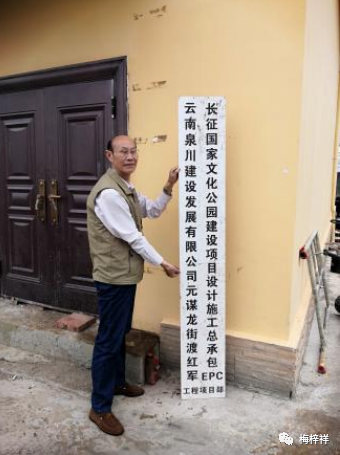 云南泉川建设发展有限公司元谋龙街渡红军
长征国家文化公园建设项目设计施工总承包EPC
工程项目部
梅梓祥